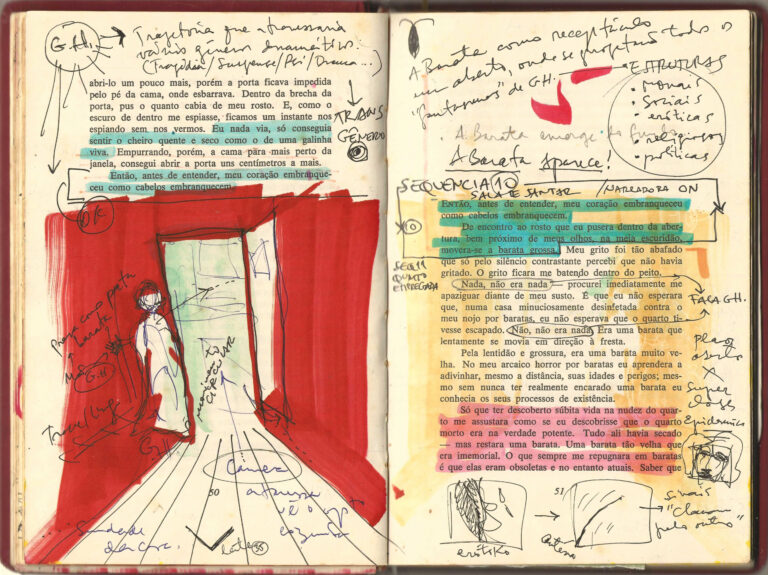 G.H. → Trajetória que atravessaria
vários gêneros dramáticos.
(Tragédia/Suspense/Pól/Drama...)
TRANS
GÊNERO
abri-lo um pouco mais, porém a porta ficava impedida
pelo pé da cama, onde esbarrava. Dentro da brecha da
porta, pus o quanto cabia de meu rosto. E, como o
escuro de dentro me espiasse, ficamos um instante nos
espiando sem nos vermos. Eu nada via, só conseguia
sentir o cheiro quente e seco como o de uma galinha
viva. Empurrando, porém, a cama para mais perto da
janela, consegui abrir a porta uns centímetros a mais.
Então, antes de entender, meu coração embranque-
ceu como cabelos embranquecem.
OK
a barata
G.H
CIRCULAR
Câmera
50
A Barata como receptáculo
em aberto, onde se projetam todos os
"fantasmas" de GH.
ESTRUTURAS
• morais
• sociais
• eróticas
• religiosas
• políticas
A Barata emerge do fundo
A Barata aparece!
SEQUENCIA 10
SALA DE JANTAR /NARRADORA ON
ENTÃO, antes de entender, meu coração embranqueceu
como cabelos embranquecem.
De encontro ao rosto que eu pusera dentro da aber-
tura, bem próximo de meus olhos, na meia escuridão,
movera-se a barata grossa. Meu grito foi tão abafado
que só pelo silêncio contrastante percebi que não havia
gritado. O grito ficara me batendo dentro do peito.
SEQ 11
QUARTO
EMPREGADA
Nada, não era nada — procurei imediatamente me
apaziguar diante de meu susto. É que eu não esperara
que, numa casa minuciosamente desinfetada contra o
meu nojo por baratas, eu não esperava que o quarto ti-
vesse escapado. Não, não era nada. Era uma barata que
lentamente se movia em direção à fresta.
FALA GH.
Pela lentidão e grossura, era uma barata muito ve-
lha. No meu arcaico horror por baratas eu aprendera a
adivinhar, mesmo a distância, suas idades e perigos; mes-
mo sem nunca ter realmente encarado uma barata eu
conhecia os seus processos de existência.
plano
aberto
X
super
closes
Só que ter descoberto súbita vida na nudez do quar-
to me assustara como se eu descobrisse que o quarto
morto era na verdade potente. Tudo ali havia secado
— mas restara uma barata. Uma barata tão velha que
era imemorial. O que sempre me repugnara em baratas
é que elas eram obsoletas e no entanto atuais. Saber que
51
sinais
"clamam
pelo outro"